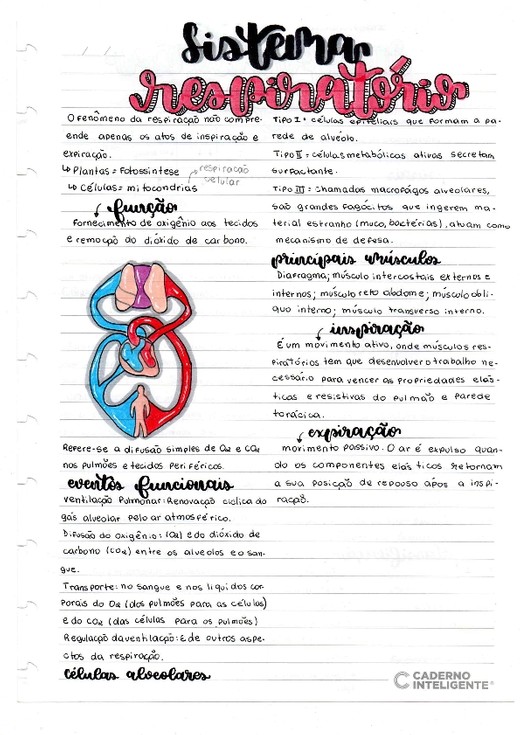 Sistema
respiratório
O fenômeno da respiração não compre-
ende apenas os atos de inspiração e
expiração.
↳ Plantas = Fotossíntese
↳ Células = mitocondrias
respiração
celular
função
Fornecimento de oxigênio aos tecidos
e remoção do dióxido de carbono.
Refere-se a difusão simples de O2 e CO2
nos pulmões e tecidos periféricos.
eventos funcionais
Ventilação Pulmonar: Renovação cíclica do
gás alveolar pelo ar atmosférico.
Difusão do oxigênio: (O2) e do dióxido de
carbono (CO2) entre os alveolos e o san-
gue.
Transporte: no sangue e nos líquidos cor-
porais do O2 (dos pulmões para as células)
e do CO2 (das células para os pulmões)
Regulação da ventilação: E de outros aspe-
ctos da respiração.
células alveolares
Tipo I = células epiteliais que formam a pa-
rede de alveolo.
Tipo II = células metabólicas ativas secretam
surfactante.
Tipo III = chamados macrofagos alveolares,
são grandes fagócitos que ingerem ma-
terial estranho (muco, bactérias), atuam como
mecanismo de defesa.
principais músculos
Diafragma; músculo intercostais externos e
internos; músculo reto abdome; músculo oblí-
quo interno; músculo transverso interno.
inspiração
É um movimento ativo, onde músculos res-
piratórios tem que desenvolver o trabalho ne-
cessário para vencer as propriedades elás-
ticas e resistivas do pulmão e parede
torácica.
expiração
movimento passivo. O ar é expulso quan-
do os componentes elásticos retornam
a sua posição de repouso após a inspi-
ração.
CADERNO
INTELIGENTE®